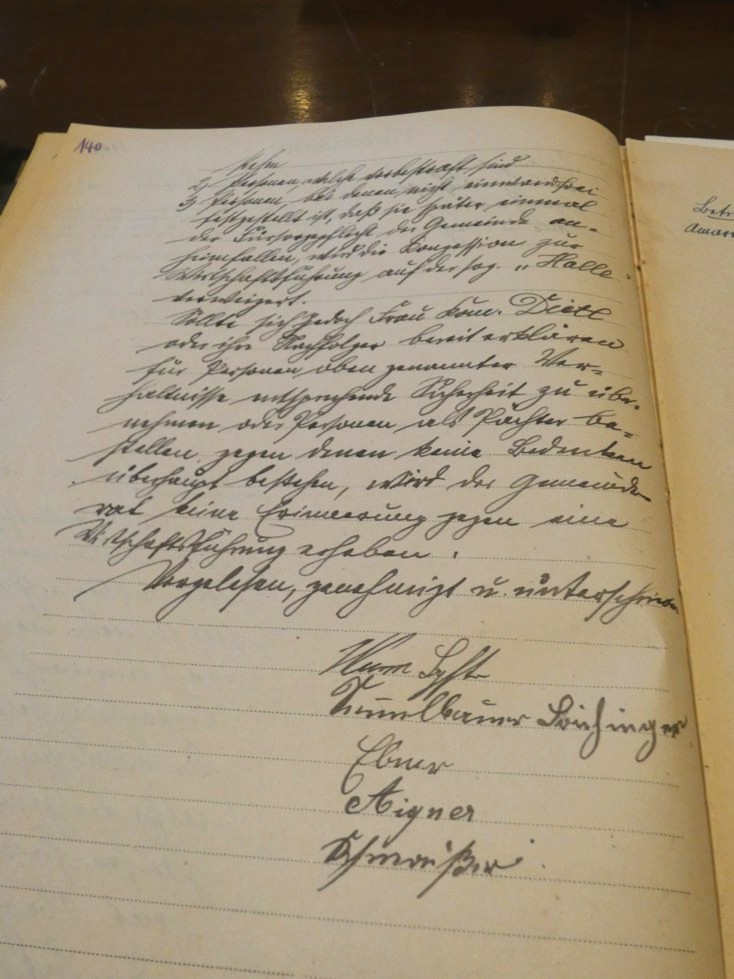 140
2) Personen, welche vorbestraft sind
3) Personen, bei denen nicht einwandfrei
festgestellt ist, daß sie später einmal
der Fürsorgepflicht der Gemeinde an-
heimfallen, wird die Konzession zur
Wirtschaftsführung auf der sog. "Halle"
verweigert.
Sollte sich jedoch Frau Kom. Dietl
oder ihre Nachfolger bereit erklären
für Personen oben genannter Ver-
hältnisse entsprechende Sicherheit zu über-
nehmen oder Personen als Pächter be-
stellen, gegen denen keine Bedenken
überhaupt bestehen, wird der Gemeinde-
rat keine Erinnerung gegen eine
Wirtschaftsführung erheben.
Vorgelesen, genehmigt u. unterschrieben
Ebner
Aigner
Betr